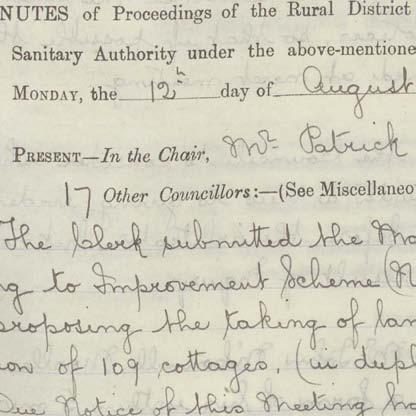 NUTES of Proceedings of the Rural District
Sanitary Authority under the above-mentione
MONDAY, the 12th day of August
PRESENT—In the Chair, Mr Patrick
17 Other Councillors:—(See Miscellaneo
The Clerk submitted the Ma
ng to Improvement Scheme (N
proposing the taking of lan
ion of 109 cottages, (in dupl
Due Notice of this Meeting ha